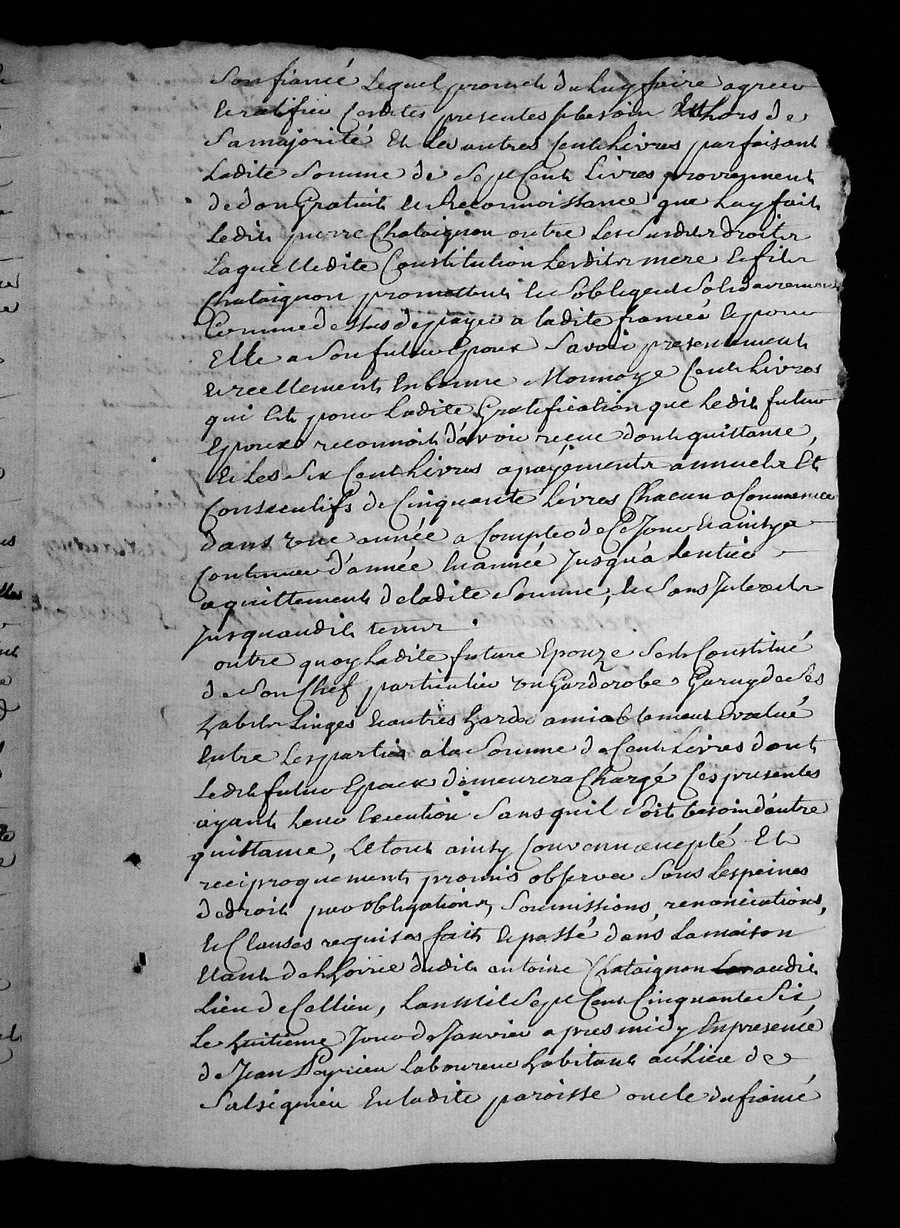 Son fiancé Lequel promet du Luy faire agreer
Et ratifier Cesdites presentes sy besoin Est hors de
Sa majorité Et Les autres Cent Livres parfaisant
Ladite Somme de Sept Cent Livres proviennent
de don Gratuit et Reconnoissance que Luy fait
Ledit pierre Chataignon outre Les Susdits droits
Laquelledite Constitution Lesdits mere Et fils
Chataignon promettent et Sobligent Solidairement
Comme dessus de payer a Ladite fiancée Et pour
Elle a Son futur Epoux Savoir presentement
Et reellement En bonne Monnoye Cent Livres
qui Est pour Ladite Gratification que Ledit futur
Epoux reconnoit d'avoir recue dont quittance,
Et Les Six Cent Livres a payements annuels Et
Consecutifs de Cinquante Livres Chacun a Commencer
dans une année a Compter de Ce Jour Et ainsy a
Continuer d'année En année Jusqu'a Lentier
aquittement de Ladite Somme, et Sans Interests
Jusquaudit terme.
outre quoy Ladite future Epouze Sest Constitué
de Son Chef particulier un Garderobe Garny de Ses
habits Linges Et autres hardes amiablement Evalué
Entre Les parties a La Somme de Cent Livres dont
Ledit futur Epoux demeurera Chargé Ces presentes
ayant Leur Execution Sans quil Soit besoin d'autre
quittance, Le tout ainsy Convenu accepté Et
reciproquement promis observer Sous Les peines
de droit par obligations, Soumissions, renonciations,
Et Clauses requises fait Et passé dans La maison
Et dudit antoine Chataignon audit
Lieu de Collieu, Lan Mil Sept Cent Cinquante Six
Le huitieme Jour de Janvier apres midy En presence
de Jean Laboureur habitant au Lieu de
Salsignieu En Ladite paroisse oncle du fiancé